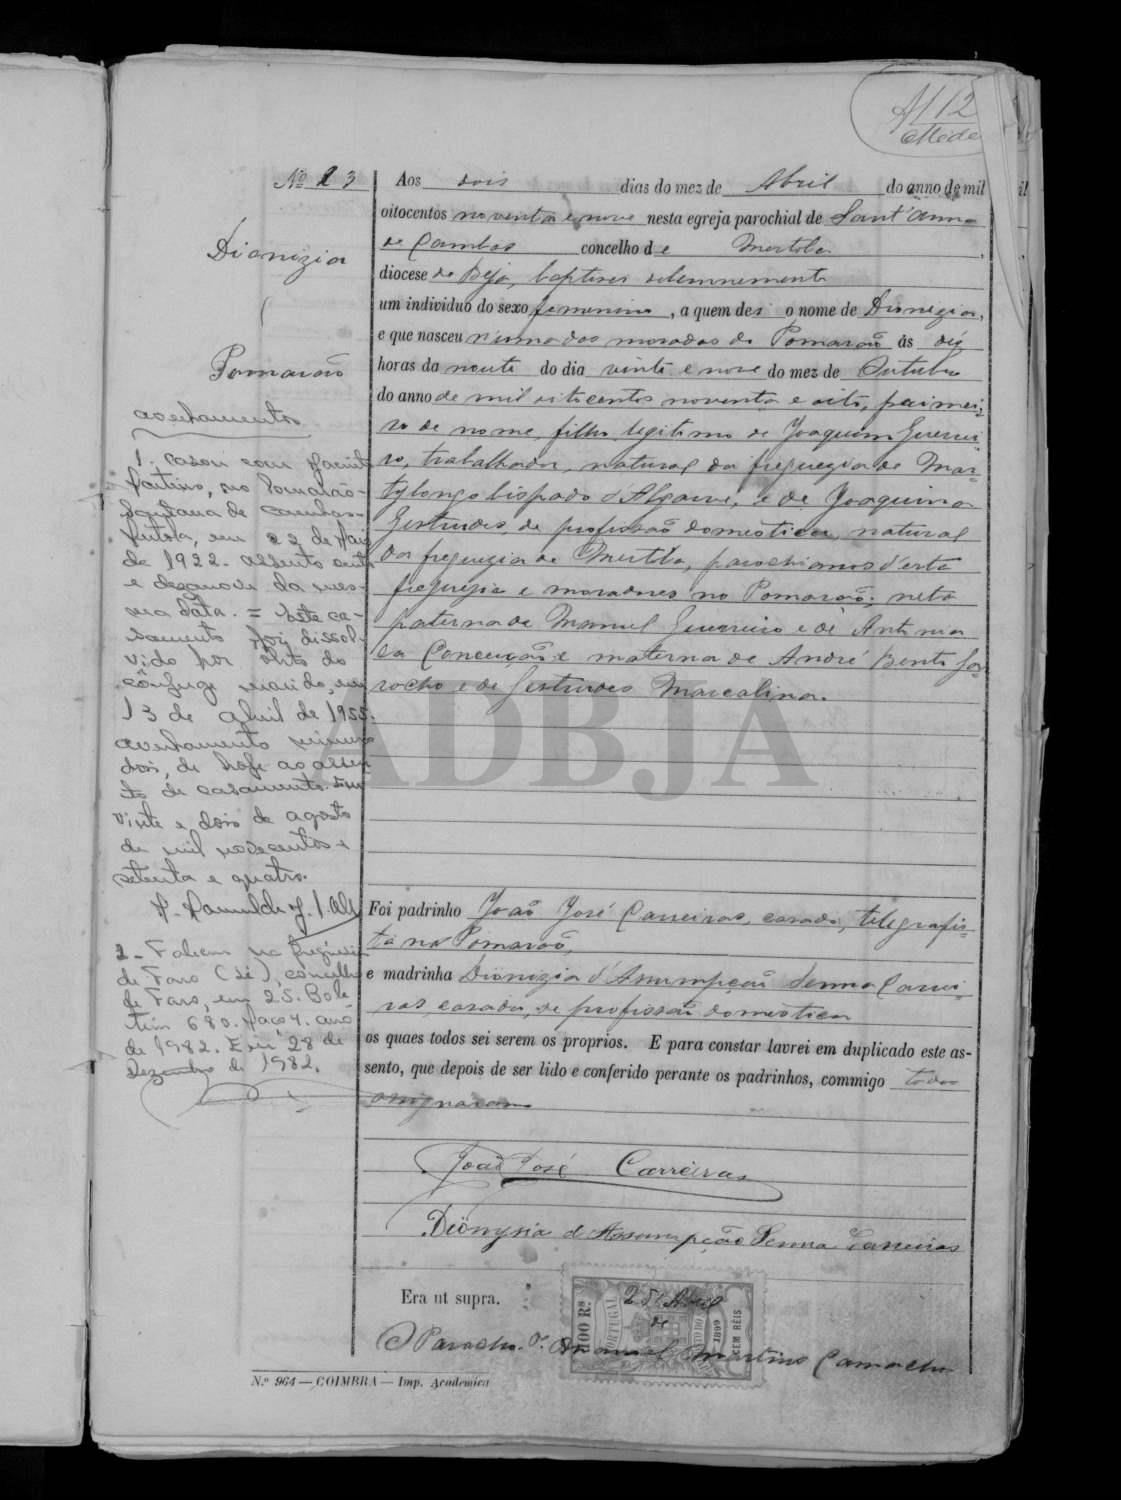 A112
Nº 23
Dionizia
Pomarão
averbamentos
1. Casou com
Martins, no Pomarão-
Santana de Cambas-
Mertola, em 22 de Maio
de 1922. Assento cento
e dezanove da mes-
ma data. = Este ca-
samento foi dissol-
vido por obito do
cônjuge marido, em
13 de abril de 1955.
averbamento numero
dois, de hoje ao assen-
to de casamento. Em
vinte e dois de agosto
de mil novecentos e
setenta e quatro.
2 - Faleceu na freguesia
de Faro (Sé), concelho
de Faro, em 25. Bole
tim 680. Maço 4. ano
de 1982. Em 28 de
Dezembro de 1982.
Aos dois dias do mez de Abril do anno de mil
oitocentos noventa e nove nesta egreja parochial de Sant'Anna
de Cambas concelho de Mertola,
diocese de Beja, baptisei solemnemente
um individuo do sexo femenino, a quem dei o nome de Dionizia,
e que nasceu n'uma das moradas do Pomarão ás dez
horas da noute do dia vinte e nove do mez de Outubro
do anno de mil oitocentos noventa e oito, primei-
ro de nome, filha legitima de Joaquim Guerrei
ro, trabalhador, natural da freguezia de Mar-
tylongo bispado d'Algarve, e de Joaquina
Gertrudes, de profissão domestica, natural
da freguezia de Mertola, parochianos d'esta
freguezia e moradores no Pomarão; neta
paterna de Manuel Guerreiro e de Antonia
da Conceição e materna de André Bento
e de Gertrudes Marcalina.
ADBJA
Foi padrinho João José Carreiras, casado, telegrafis-
ta no Pomarão,
e madrinha Dionizia d'Assumpção Senna Carrei-
ras, casada, de profissão domestica
os quaes todos sei serem os proprios. E para constar lavrei em duplicado este as-
sento, que depois de ser lido e conferido perante os padrinhos, commigo todos
assignaram
João José Carreiras
Dionysia d'Assumpção Senna Carreiras
Era ut supra.
100 Rs
PORTUGAL
1899
CEM RÉIS
2 de Abril
O Parocho. Pe. Manuel Martins Camacho
N.º 964 — COIMBRA — Imp. Academica